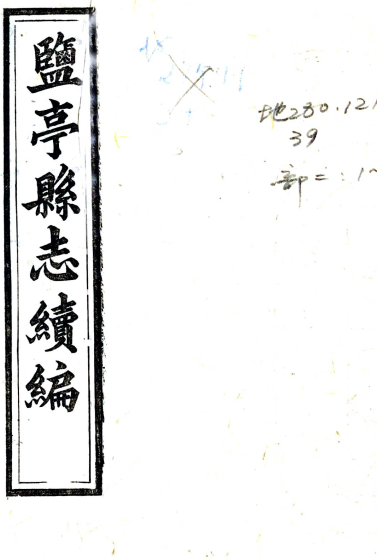 鹽亭縣志續編
地280.121
39
部二:1